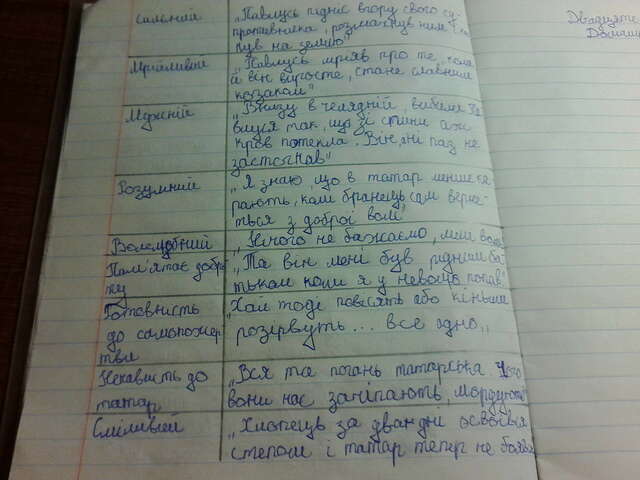 Сильний
„Павлусь підніс вгору свого су
противника, розмахнув ним і ки
нув на землю"
Мрійливий
„Павлусь мріяв про те, коли
й він виросте, стане славним
козаком"
Мужній
„Внизу в челядній, вибили Па
влуся так, що зі спини аж
кров потекла. Він ні раз не
застогнав"
Розумний
„Я знаю, що в татар менше ка
рають, коли бранець сам верне
ться з доброї волі"
Волелюбний
„Нічого не бажаємо, лиш волі
Пам'ятає добро
ту
„Та він мені був рідним ба
тьком коли я у неволю попав"
Готовність
до самопожер
тви
„Хай тоді повісять або кіньми
розірвуть... все одно„
Ненависть до
татар
„Вся та погань татарська. Чого
вони нас зачіпають, мордують
Сміливий
„Хлопець за два дні освоївся
степом і татар тепер не боявся
Двадцяте
Домашня